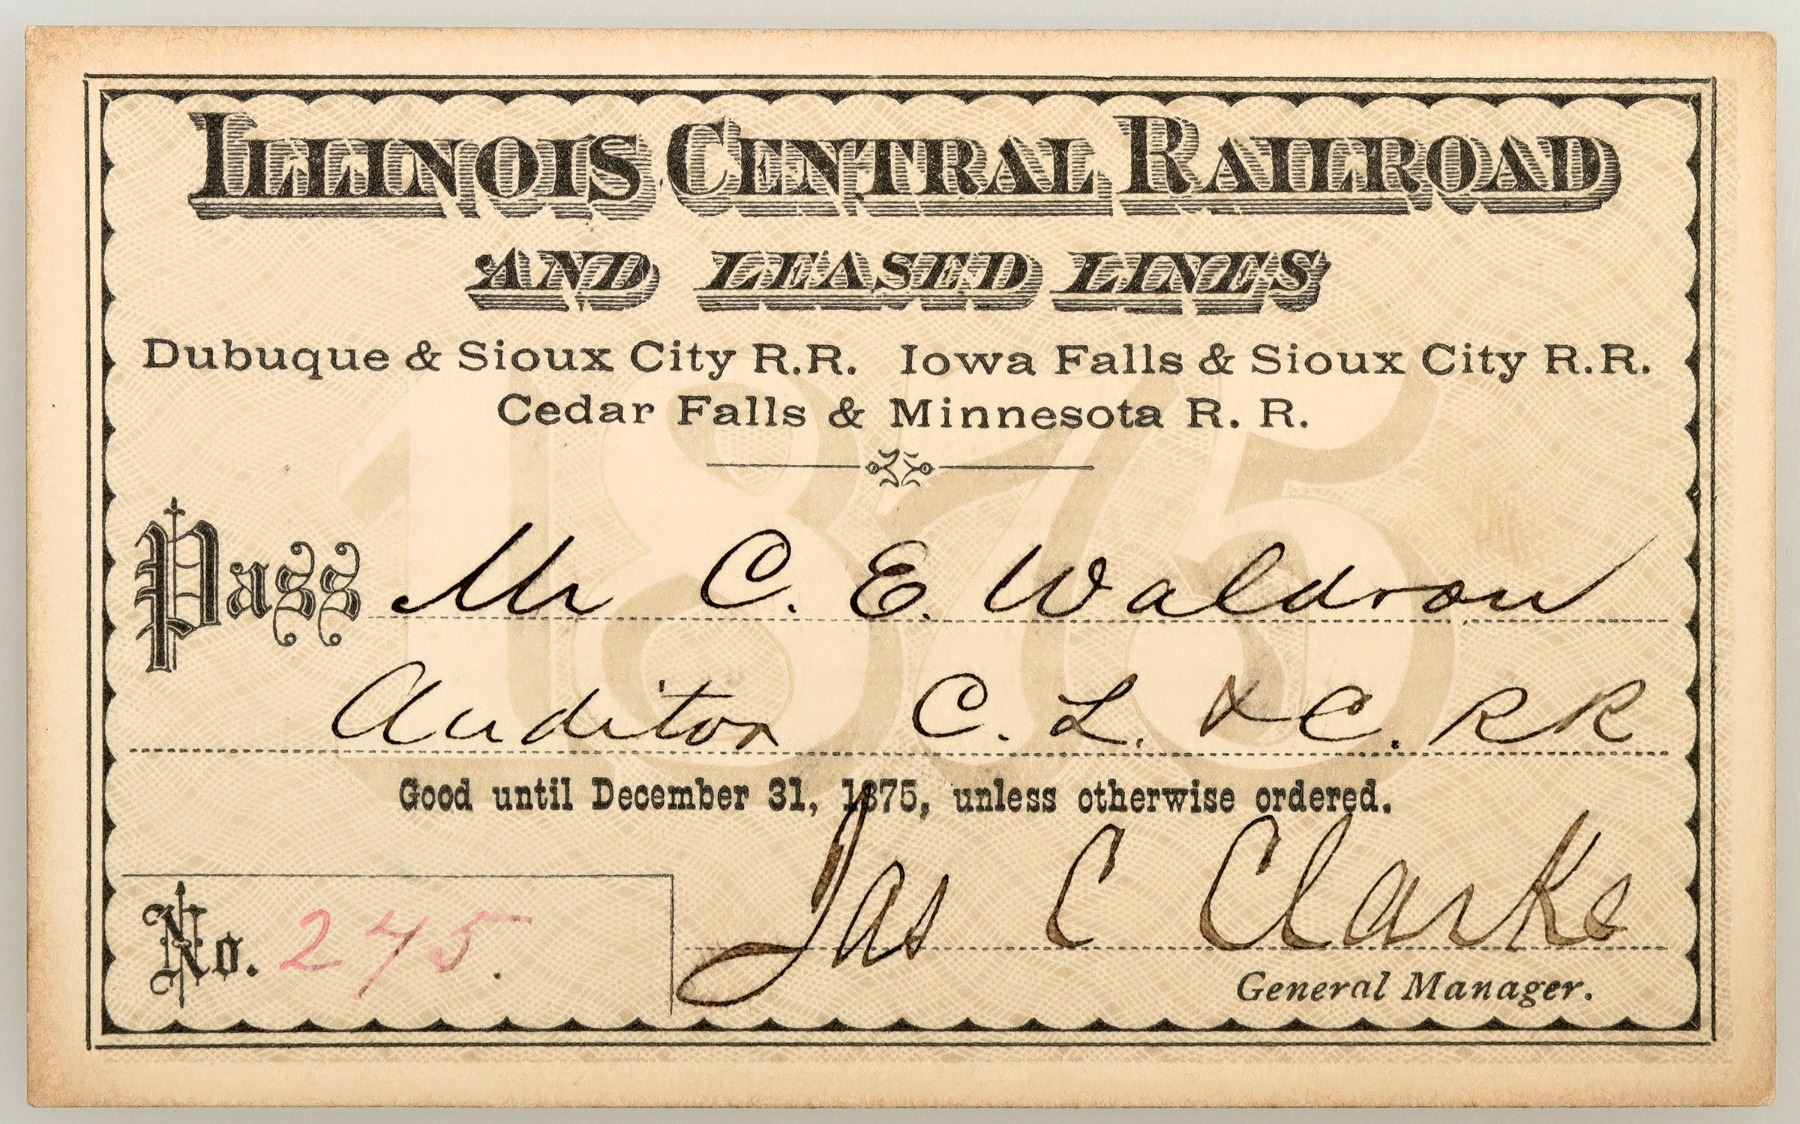 ILLINOIS CENTRAL RAILROAD
AND LEASED LINES
Dubuque & Sioux City R.R. Iowa Falls & Sioux City R.R.
Cedar Falls & Minnesota R. R.
1875
Pass Mr C. E. Waldron
Auditor C. L. & C. RR
Good until December 31, 1875, unless otherwise ordered.
No. 245. Jas C Clarke
General Manager.